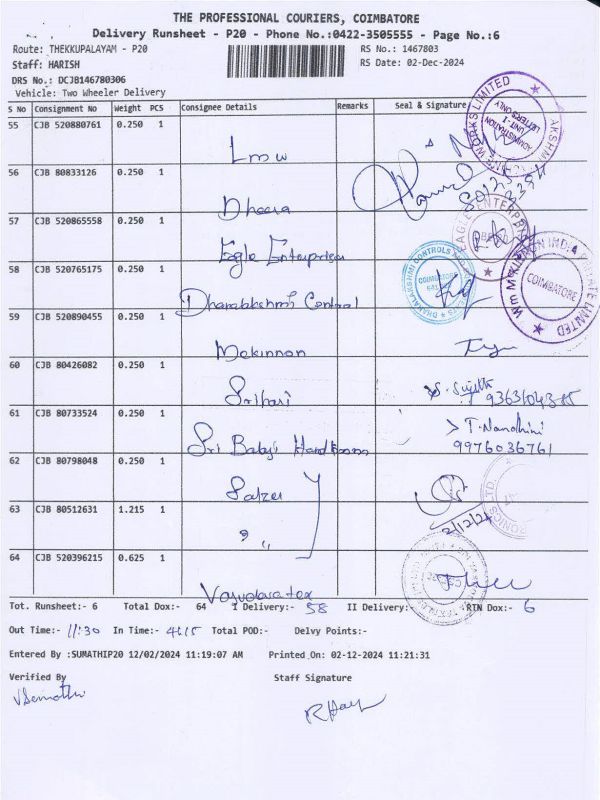 THE PROFESSIONAL COURIERS, COIMBATORE
Delivery Runsheet - P20 - Phone No.:0422-3505555 - Page No.:6
Route: THEKKUPALAYAM - P20 RS No.: 1467803
Staff: HARISH RS Date: 02-Dec-2024
DRS No.: DCJB146780306
Vehicle: Two Wheeler Delivery
S No Consignment No Weight PCS Consignee Details Remarks Seal & Signature
55 CJB 520880761 0.250 1 Lmw
56 CJB 80833126 0.250 1 Dheera
57 CJB 520865558 0.250 1 Eagle Enterprises
58 CJB 520765175 0.250 1 Dhanalakshmi Control
59 CJB 520890455 0.250 1 Mckinnon
60 CJB 80426082 0.250 1 Srihari
61 CJB 80733524 0.250 1 Sri Babaji T. Nandhini
9976036761
62 CJB 80798048 0.250 1 Salzer
63 CJB 80512631 1.215 1 " 2/12/24
64 CJB 520396215 0.625 1
EAGLE ENTERPRISES
COIMBATORE
COIMBATORE
ADMINISTRATION
UNIT-I
LETTERS ONLY
Tot. Runsheet:- 6 Total Dox:- 64 I Delivery:- 58 II Delivery:- RTN Dox:- 6
Out Time:- 11:30 In Time:- 4:15 Total POD:- Delvy Points:-
Entered By :SUMATHIP20 12/02/2024 11:19:07 AM Printed On: 02-12-2024 11:21:31
Verified By Staff Signature